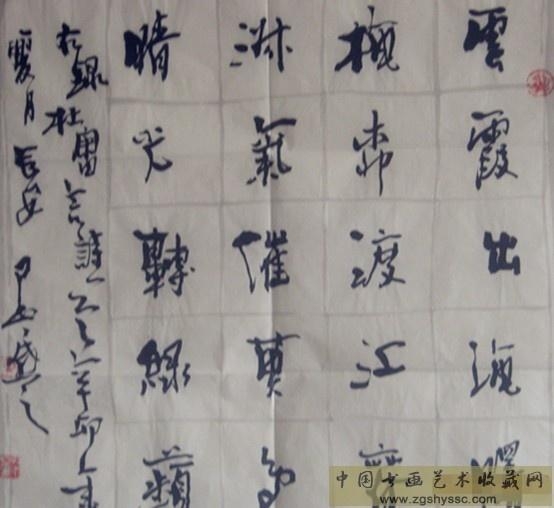 雲霞出海曙
梅柳渡江春
淑氣催黄鳥
晴光轉緑蘋
右録杜審言詩一
夏月長安
中国书画艺术收藏网
www.zgshyssc.com